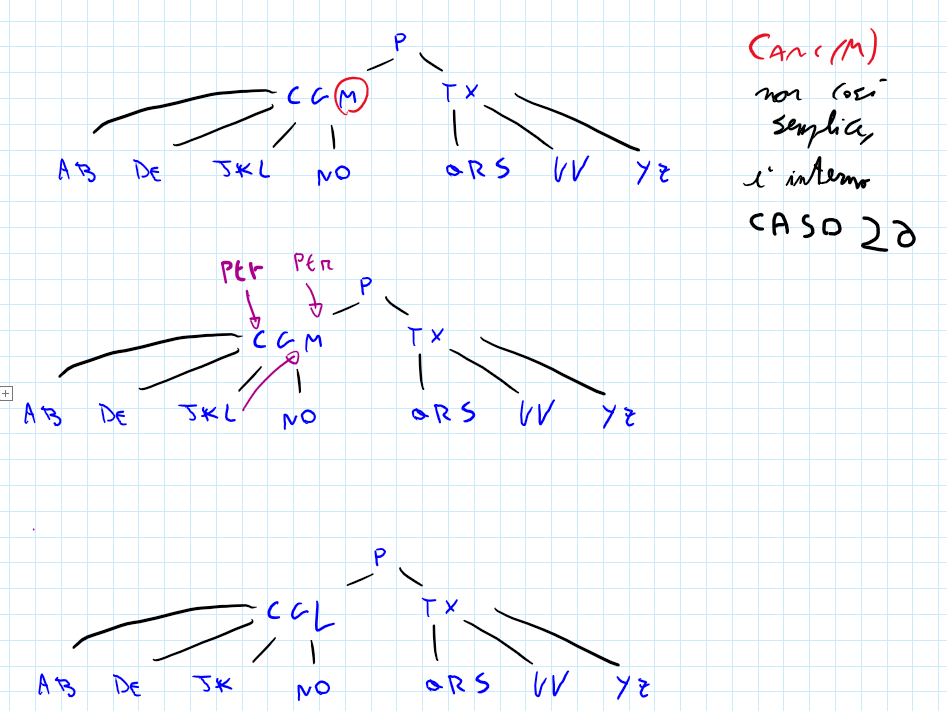 P
C G M
T X
AB DE JKL NO QRS UV YZ
CANC(M)
non così
semplice,
è interno
CASO 2a
Ptr Ptr
P
C G M
T X
AB DE JKL NO QRS UV YZ
P
C G L
T X
AB DE JK NO QRS UV YZ